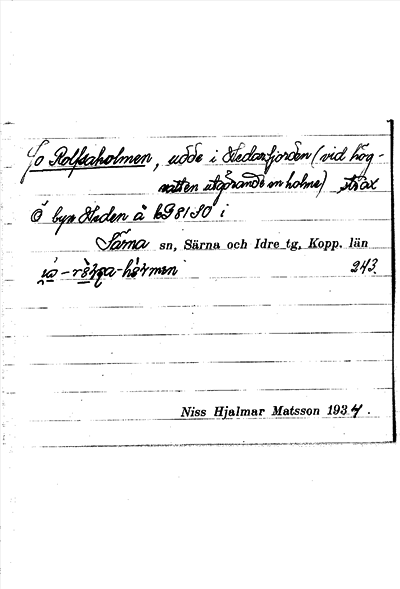 Jo Rolfsaholmen, udde i Hedarfjorden (vid hög-
vatten utgörande en holme) strax
Ö byn Heden å kG 81 SO i
Särna sn, Särna och Idre tg, Kopp. län
243
Niss Hjalmar Matsson 1934.